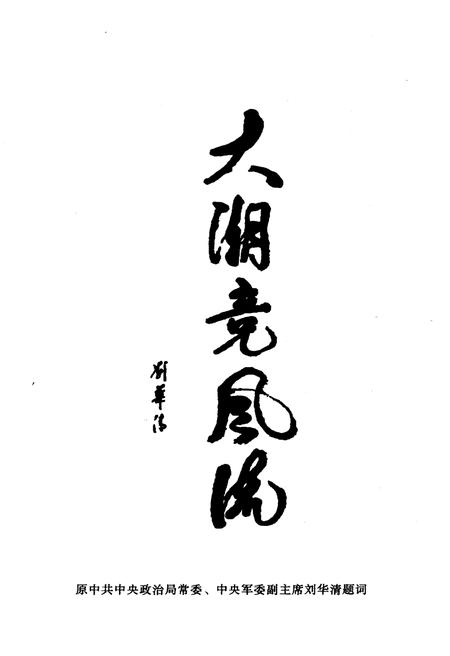 大潮竞风流
刘华清
原中共中央政治局常委、中央军委副主席刘华清题词